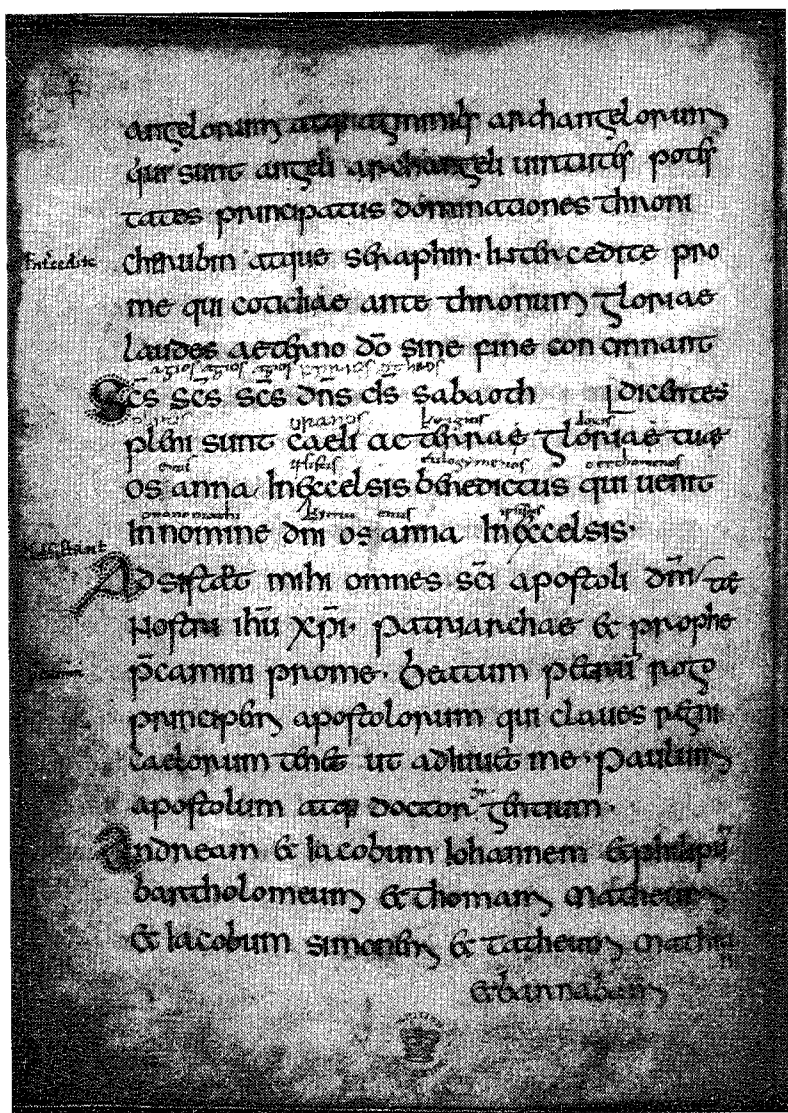 angelorum atq; agminib; archangelorum
qui sunt angeli archangeli uirtutes potes
tates principatus dominationes throni
cherubin atque seraphin. Intercedite pro
me qui cotidiae ante thronum gloriae
laudes aeterno dō sine fine concinnant
agios agios agios
Scs scs scs dns ds sabaoth dicentes
uranos
pleni sunt caeli ac terrae gloriae tuae
eulogymenos
os anna In excelsis benedictus qui uenit
In nomine dni os anna In excelsis.
Adsistant mihi omnes sci apostoli dni
nostri ihu xpi. patriarchae & prophe tae
pcamini prome. beatum petrum rogo
principem apostolorum qui claues regni
caelorum tenet ut adiuuet me. paulum
apostolum atq; doctorem gentium.
Andream & Iacobum Iohannem & philippum
bartholomeum & thomam Matheum
& Iacobum simonem & tatheum Mathiam
& barnaban